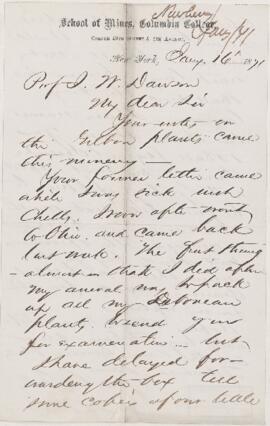 Newberry
Jany/71
School of Mines, Columbia College,
Corner 49th Street & 4th Avenue,
New York, Jany. 16th 1871
Prof J. W. Dawson
My dear Sir
Your notes on
the Gilboa plants came
this morning —
Your former letter came
while I was sick with
Chills. Soon after I went
to Ohio and came back
last week. The first thing
almost in that I did after
my arrival was to pack
up all my Devonean
plants to send you
for examination — but
I have delayed for-
warding the box till
some copies of our little